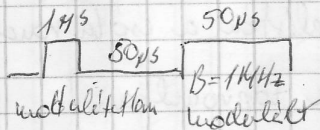 1μs 50μs
50μs
B=1MHz
modulálatlan modulált